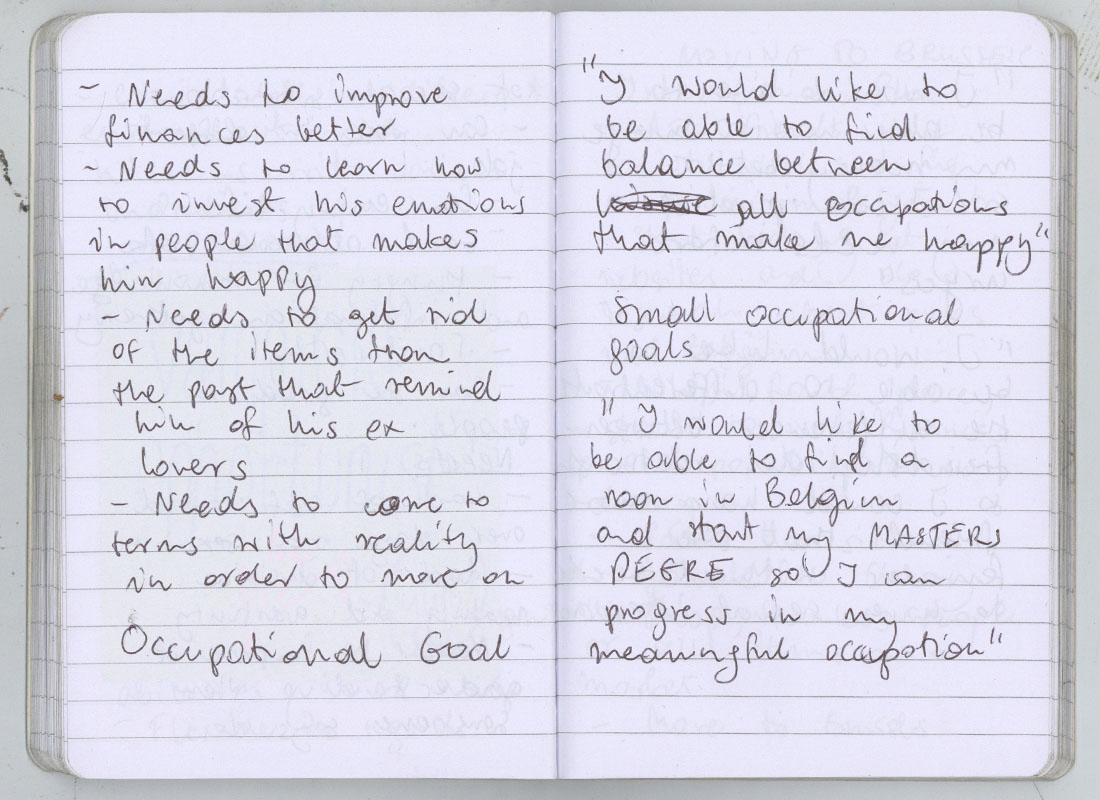 - Needs to improve
finances better
- Needs to learn how
to invest his emotions
in people that makes
him happy
- Needs to get rid
of the items from
the past that remind
him of his ex
lovers
- Needs to come to
terms with reality
in order to move on
Occupational Goal
"I would like to
be able to find
balance between
all occupations
that make me happy"
Small occupational
goals
"I would like to
be able to find a
room in Belgium
and start my MASTERS
DEGRE so I can
progress in my
meaningful occupation"